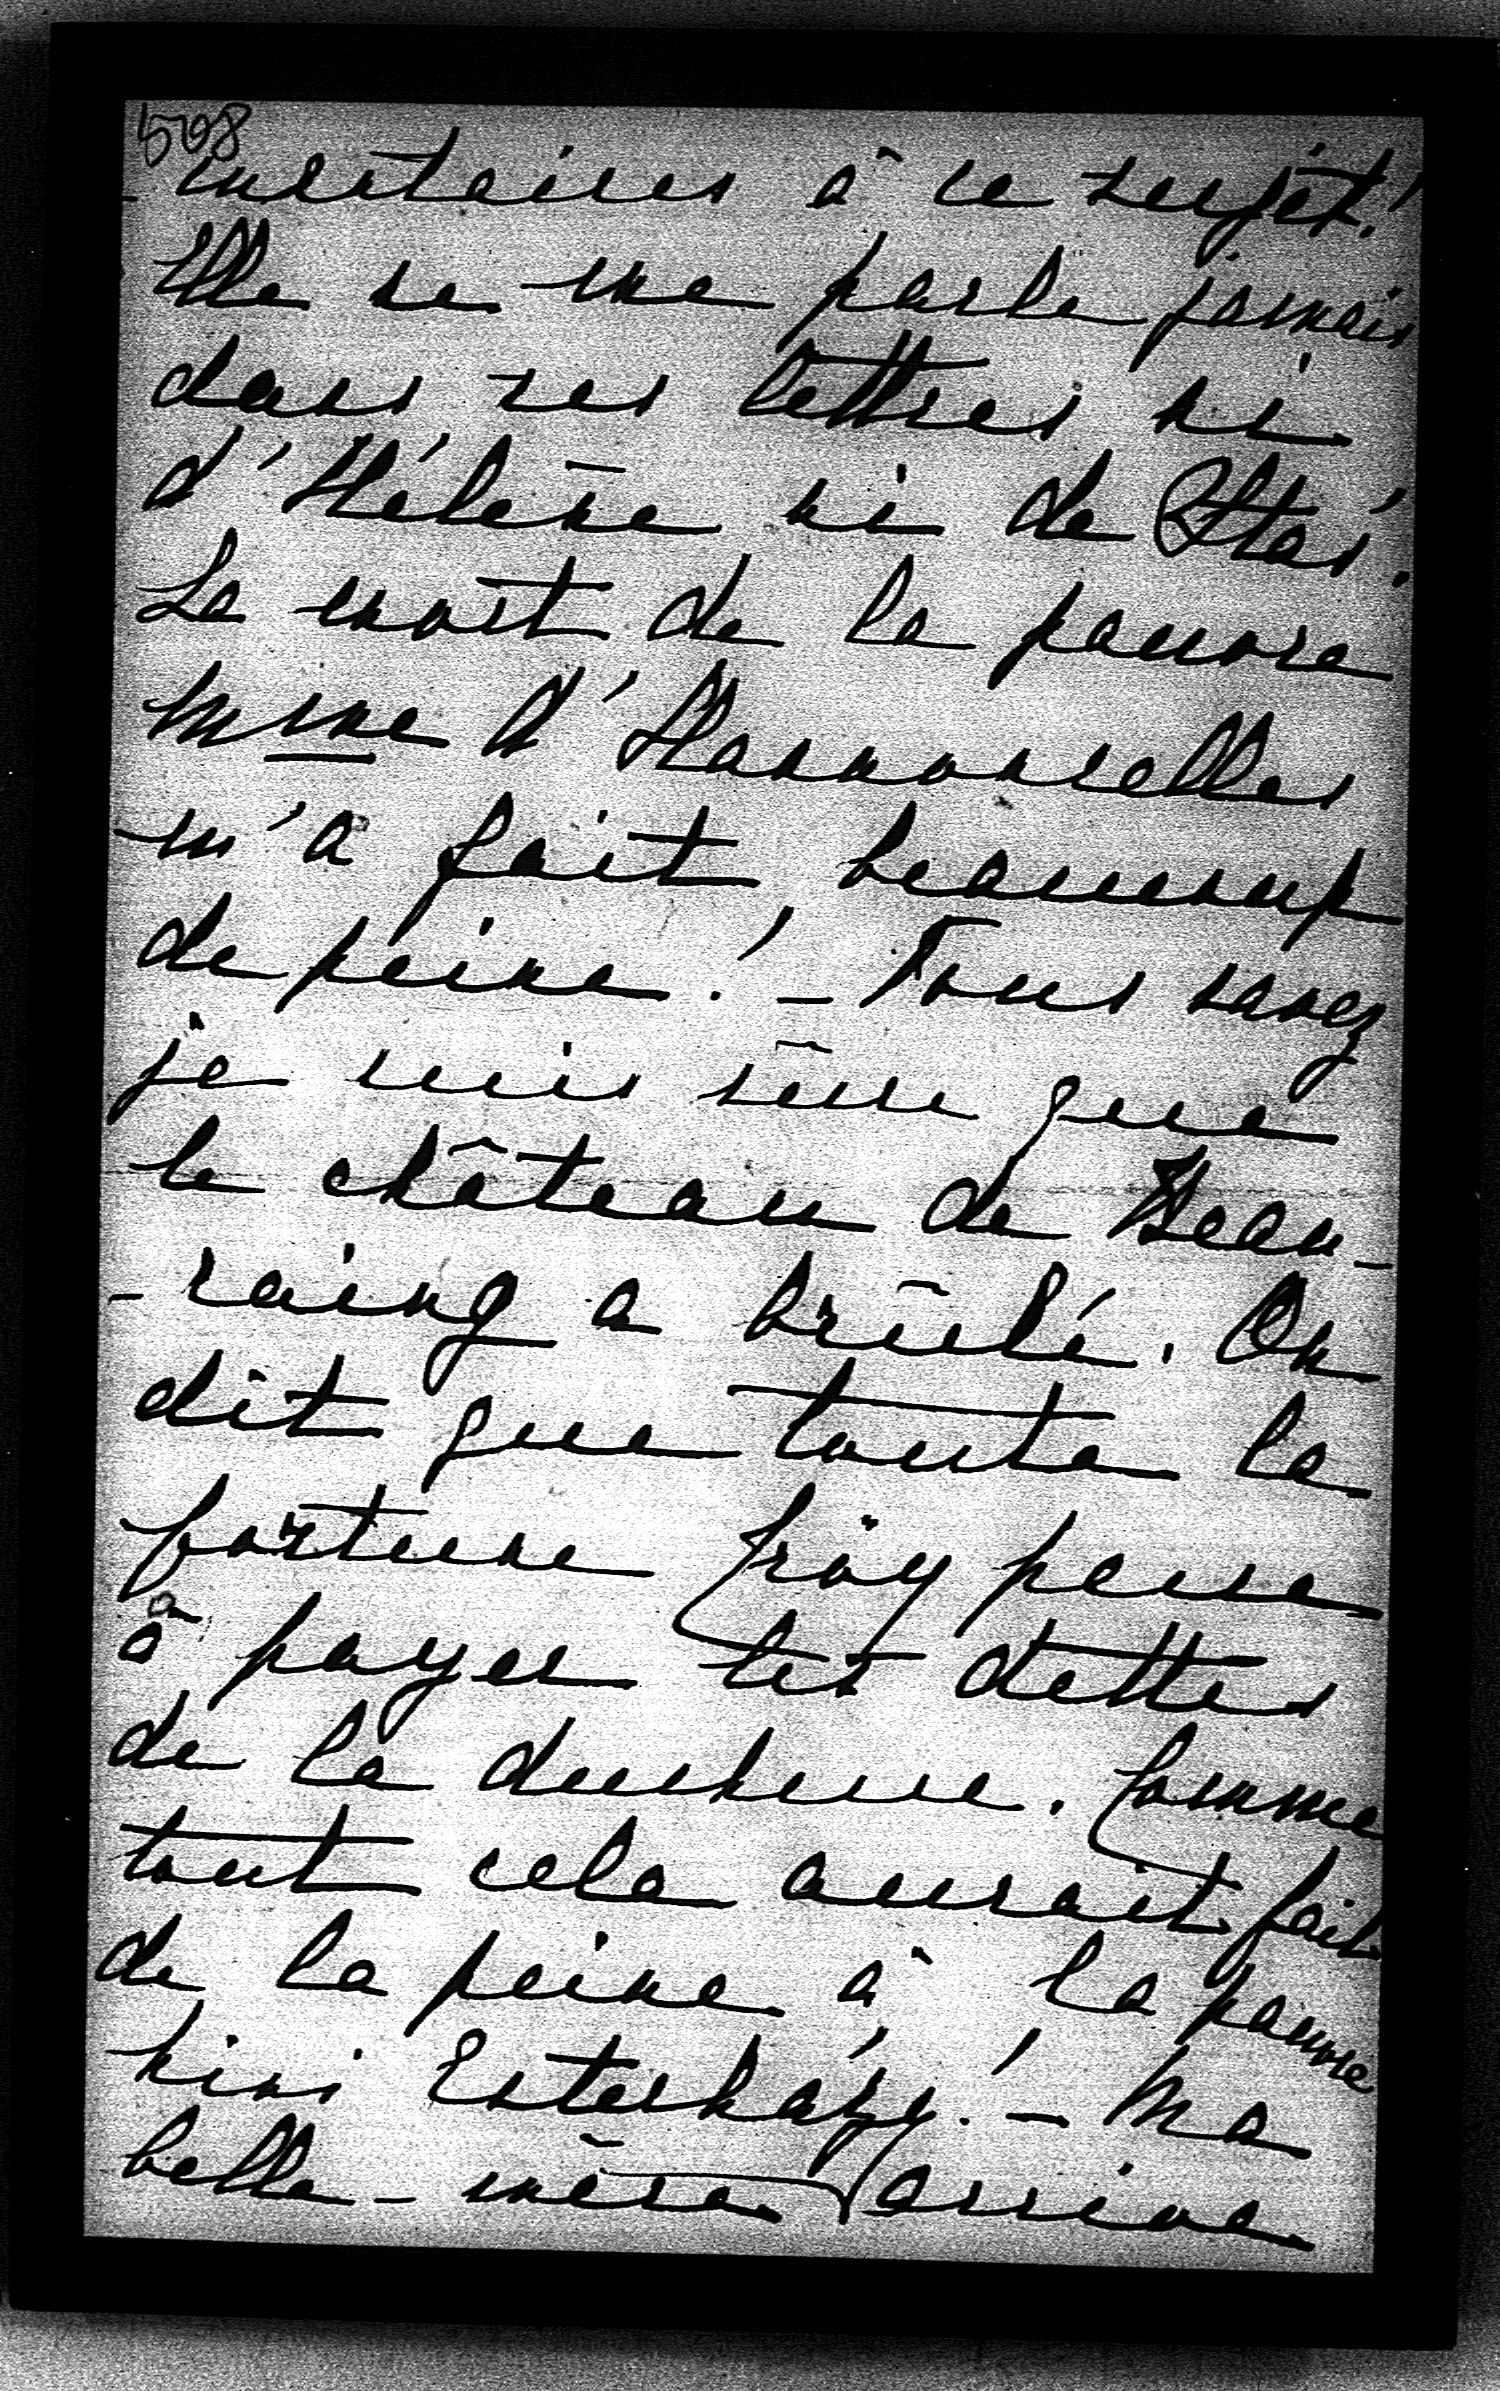 508
-mentaires à ce sujet!
Elle ne me parle jamais
dans ses lettres ni
d'Hélène ni de Stas'.
La mort de la pauvre
Mme d'Hannonselles
m'a fait beaucoup
de peine! - Vous savez
je suis sûre que
le château de Beau-
-raing a brûlé. On
dit que toute la
fortune J'roy passe
à payer les dettes
de la duchesse. Comme
tout cela aurait fait
de la peine à la pauvre
Nini Esterházy! - Ma
belle-mère arrive